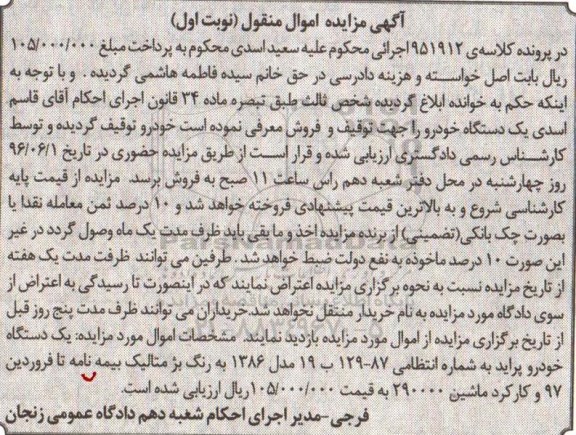 آگهی مزایده اموال منقول (نوبت اول)
در پرونده کلاسه‌ی ۹۵۱۹۱۲ اجرائی محکوم علیه سعید اسدی محکوم به پرداخت مبلغ ۱۰۵/۰۰۰/۰۰۰
ریال بابت اصل خواسته و هزینه دادرسی در حق خانم سیده فاطمه هاشمی گردیده . و با توجه به
اینکه حکم به خوانده ابلاغ گردیده شخص ثالث طبق تبصره ماده ۳۴ قانون اجرای احکام آقای قاسم
اسدی یک دستگاه خودرو را جهت توقیف و فروش معرفی نموده است خودرو توقیف گردیده و توسط
کارشناس رسمی دادگستری ارزیابی شده و قرار است از طریق مزایده حضوری در تاریخ ۹۶/۰۶/۱
روز چهارشنبه در محل دفتر شعبه دهم راس ساعت ۱۱ صبح به فروش برسد. مزایده از قیمت پایه
کارشناسی شروع و به بالاترین قیمت پیشنهادی فروخته خواهد شد و ۱۰ درصد ثمن معامله نقدا یا
بصورت چک بانکی(تضمینی) از برنده مزایده اخذ و ما بقی باید ظرف مدت یک ماه وصول گردد در غیر
این صورت ۱۰ درصد ماخوذه به نفع دولت ضبط خواهد شد . طرفین می توانند ظرفت مدت یک هفته
از تاریخ مزایده نسبت به نحوه برگزاری مزایده اعتراض نمایند که در اینصورت تا رسیدگی به اعتراض از
سوی دادگاه مورد مزایده به نام خریدار منتقل نخواهد شد.خریداران می توانند ظرف مدت پنج روز قبل
از تاریخ برگزاری مزایده از اموال مورد مزایده بازدید نمایند. مشخصات اموال مورد مزایده: یک دستگاه
خودرو پراید به شماره انتظامی ۸۷-۱۲۹ ب ۱۹ مدل ۱۳۸۶ به رنگ بژ متالیک بیمه نامه تا فروردین
۹۷ و کارکرد ماشین ۲۹۰۰۰۰ به قیمت ۱۰۵/۰۰۰/۰۰۰ ریال ارزیابی شده است.
فرجی-مدیر اجرای احکام شعبه دهم دادگاه عمومی زنجان
ParsNamadData